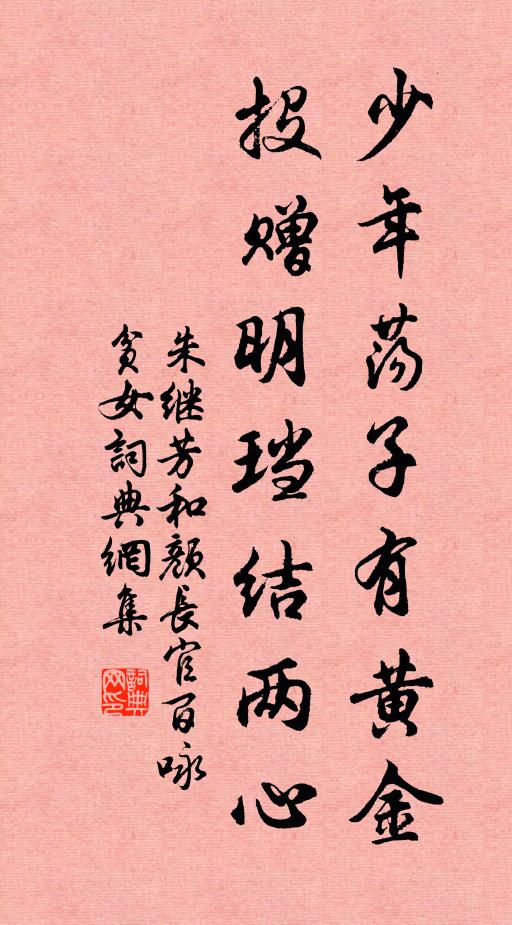 少年荡子有黄金
投赠明珰结两心
朱继芳和颜長官百咏
貧女詞典網集
詞典网印